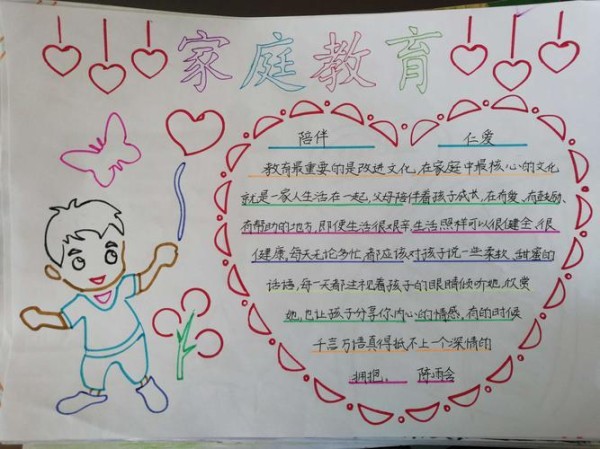 家庭教育
陪伴 仁爱
教育最重要的是改进文化,在家庭中最核心的文化
就是一家人生活在一起,父母陪伴着孩子成长,在有爱、有鼓励、
有帮助的地方,即便生活很艰辛,生活照样可以很健全、很
健康,每天无论多忙,都应该对孩子说一些柔软、甜蜜的
话语,每一天都注视着孩子的眼睛倾听她,欣赏
她,也让孩子分享你内心的情感,有的时候
千言万语真得抵不上一个深情的
拥抱。 陈雨含